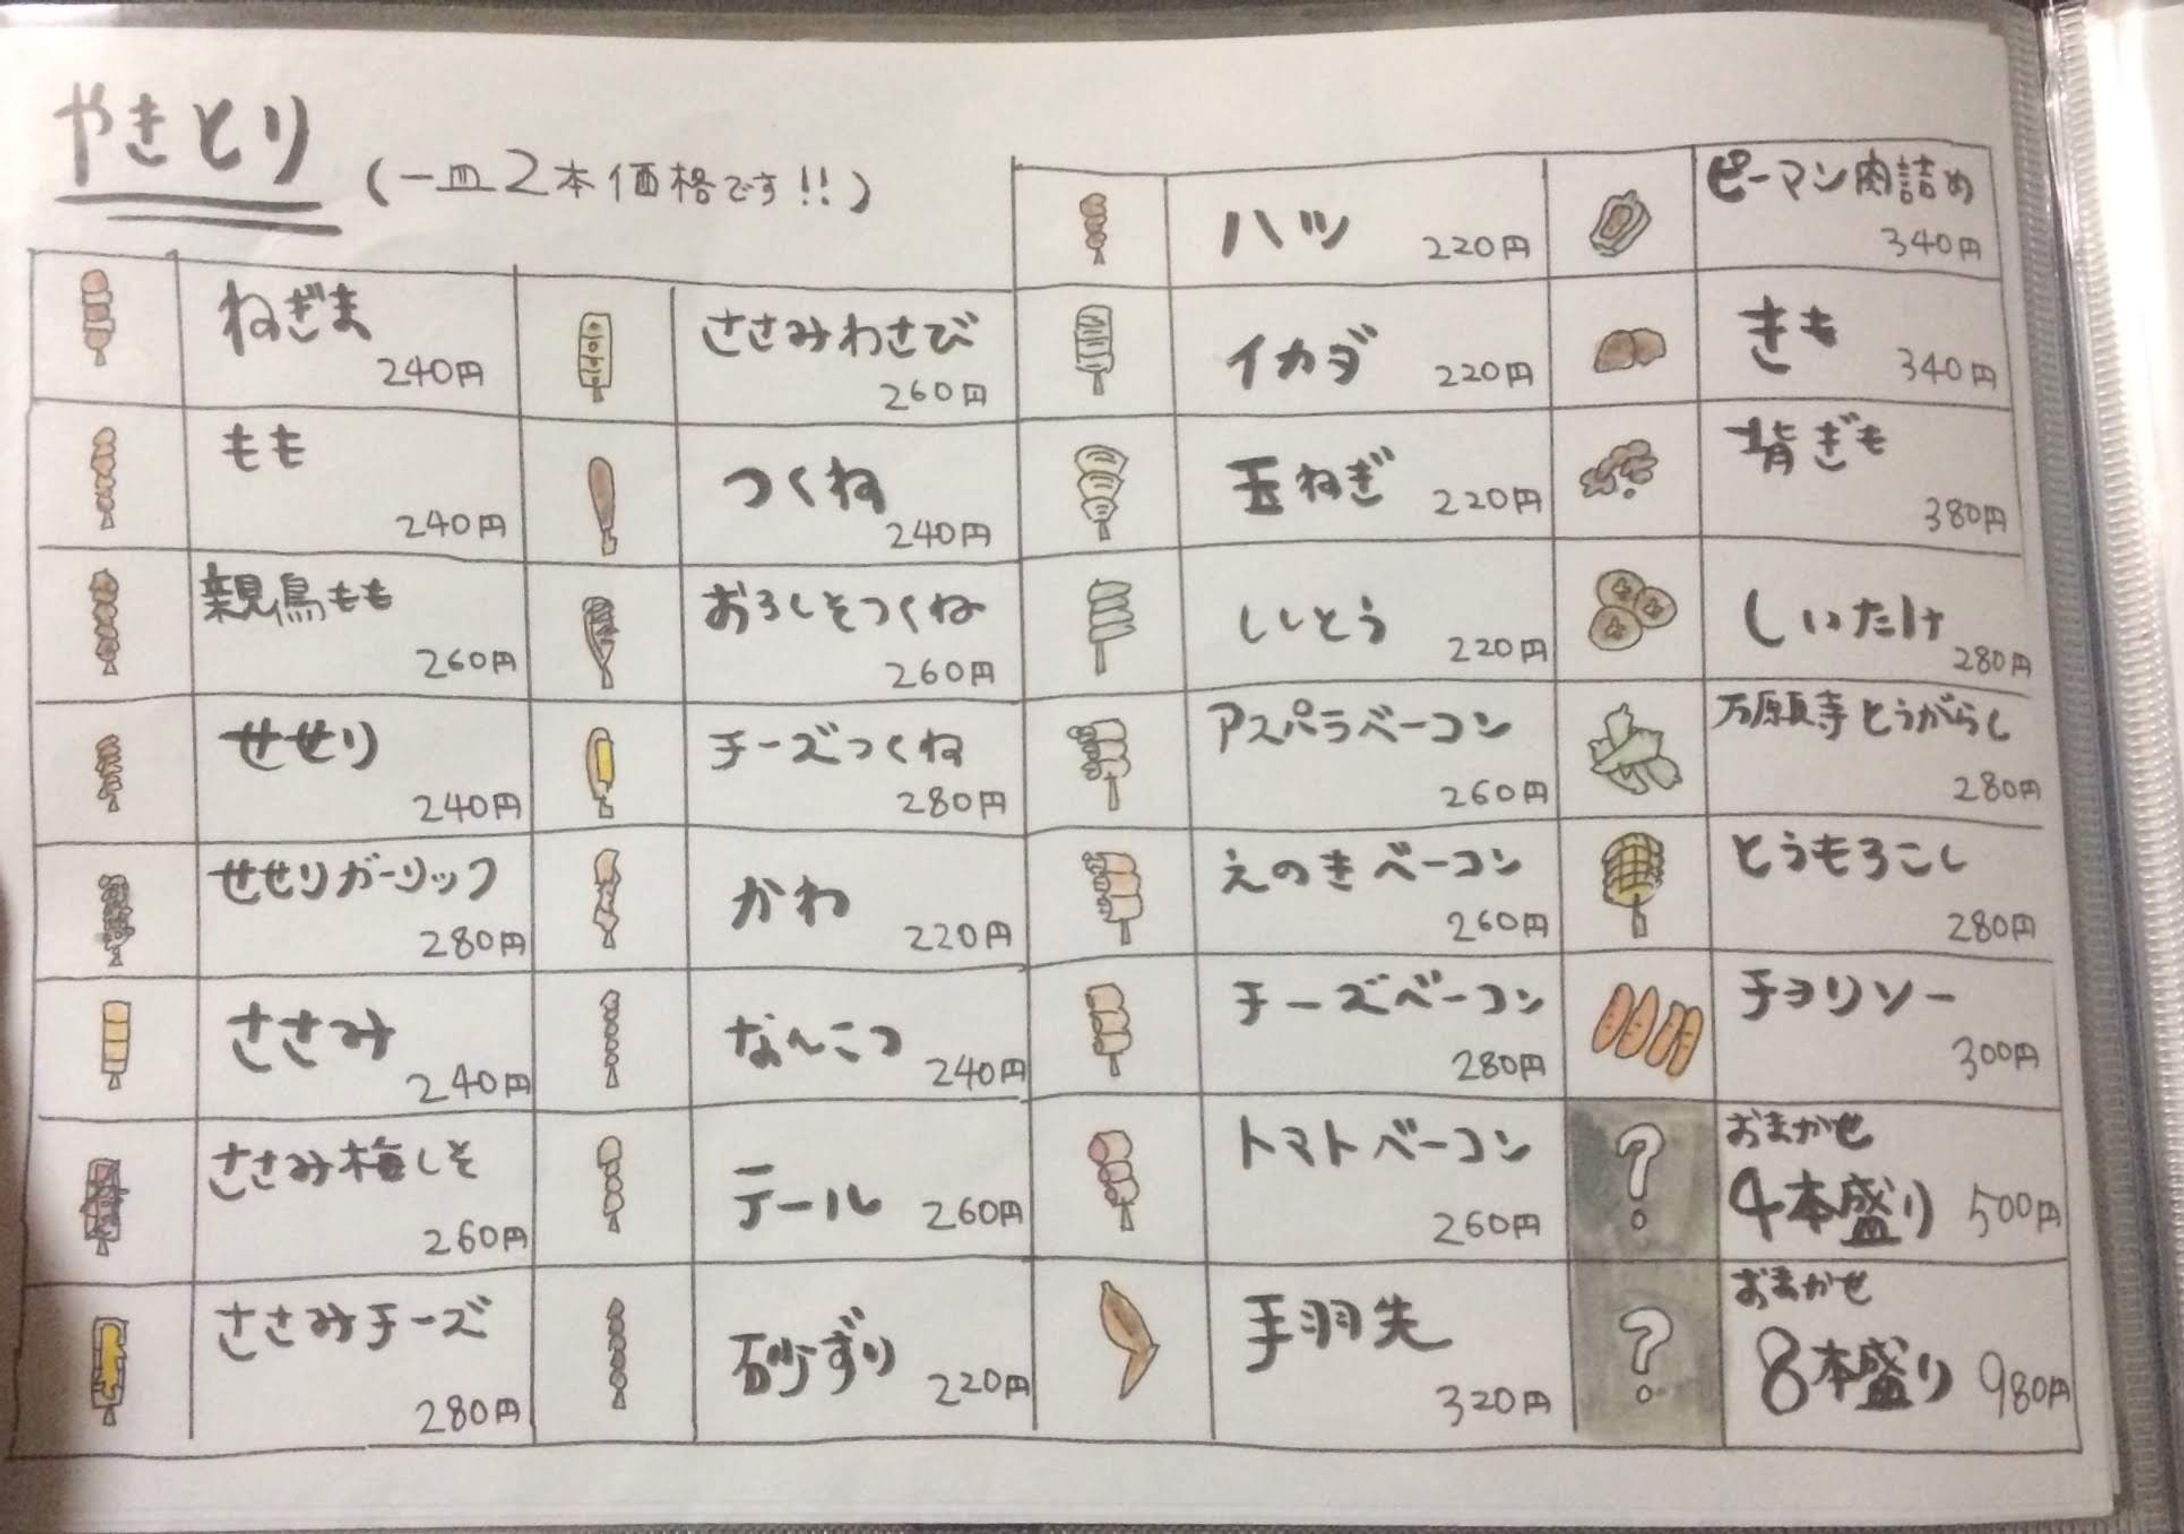 やきとり
(一皿2本価格です!!)
ねぎま
240円
もも
240円
親鳥もも
260円
せせり
240円
せせりガーリック
280円
ささみ
240円
ささみ梅しそ
260円
ささみチーズ
280円
ささみわさび
260円
つくね
240円
おろしそつくね
260円
チーズつくね
280円
かわ 220円
なんこつ 240円
テール 260円
砂ずり 220円
ハツ 220円
イカダ 220円
玉ねぎ 220円
ししとう 220円
アスパラベーコン
260円
えのきベーコン
260円
チーズベーコン
280円
トマトベーコン
260円
手羽先
320円
ピーマン肉詰め
340円
きも 340円
背ぎも
380円
しいたけ
280円
万願寺とうがらし
280円
とうもろこし
280円
チョリソー
300円
?
おまかせ
4本盛り 500円
?
おまかせ
8本盛り 980円